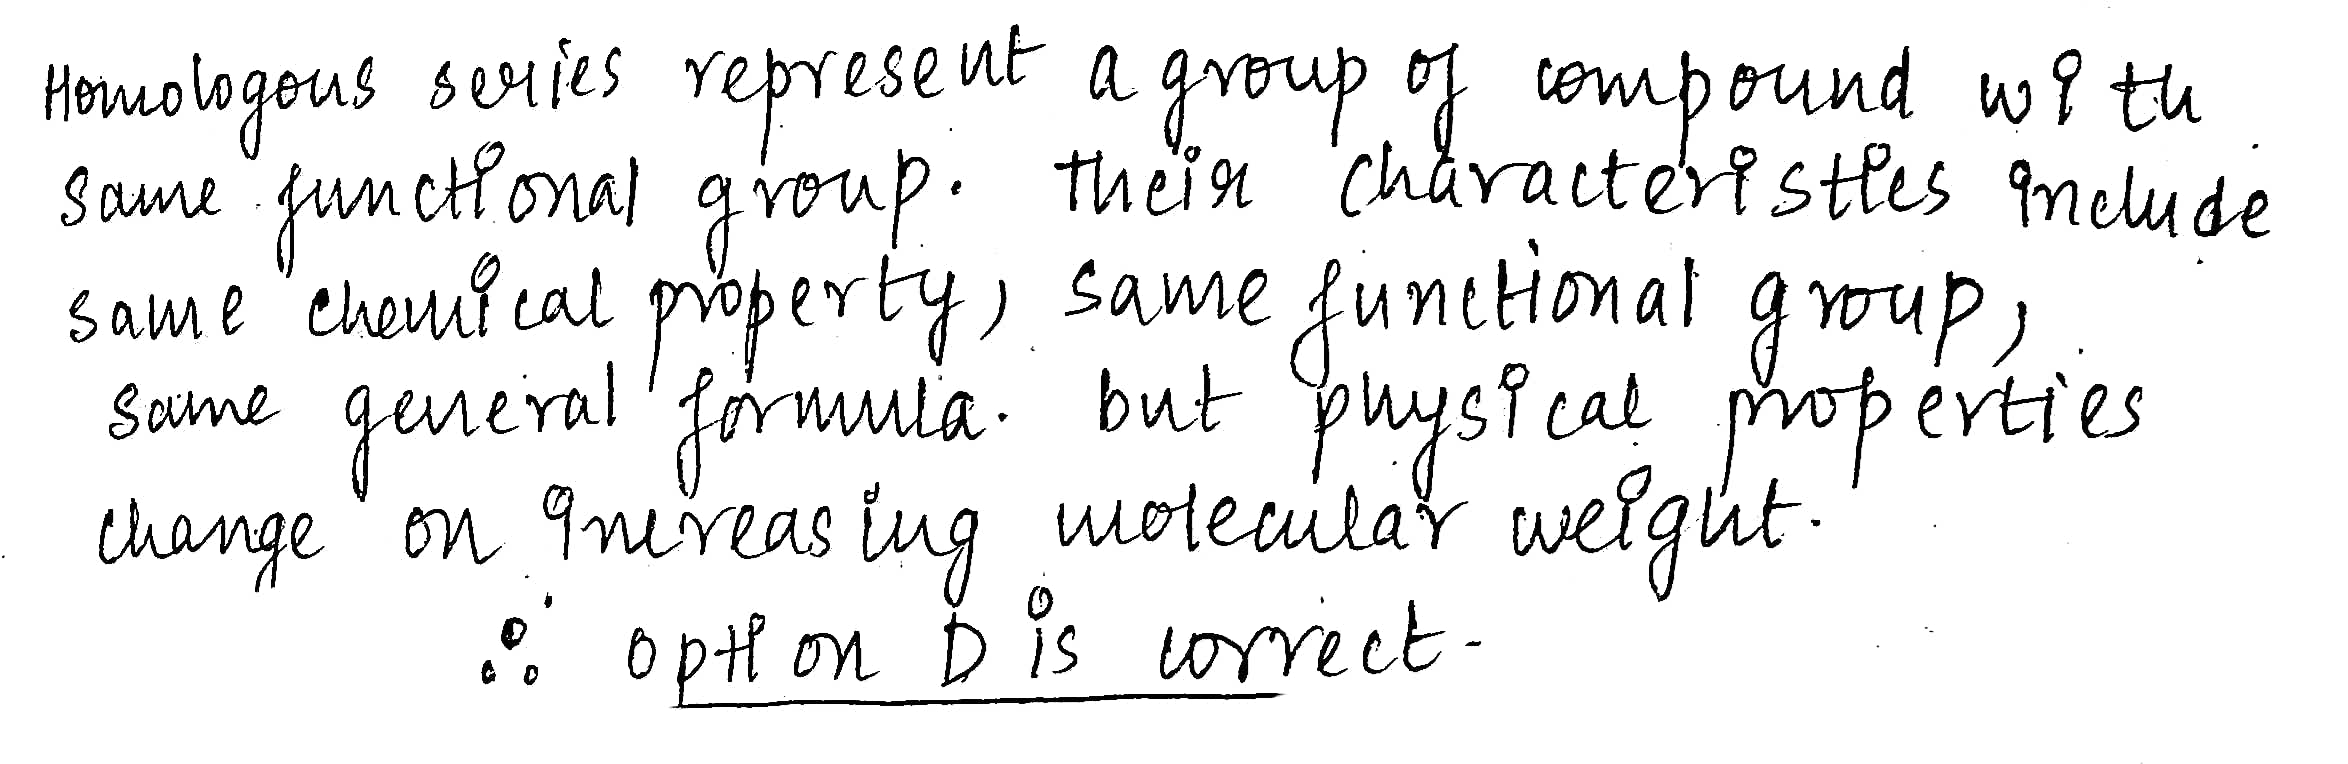 Homologous series represent a group of compound with
same functional group. Their characteristics include
same chemical property, same functional group,
same general formula. but physical properties
change on increasing molecular weight.
∴ option D is correct.